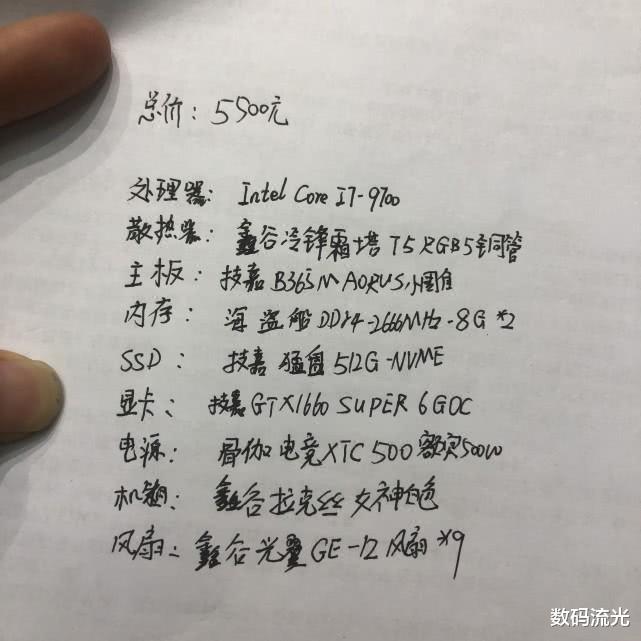 总价：5500元
处理器：Intel Core I7-9700
散热器：鑫谷冷锋霜塔T5 RGB 5铜管
主板：技嘉B365M AORUS小雕
内存：海盗船DDR4-2666MHz-8G*2
SSD：技嘉猛盘512G-NVME
显卡：技嘉GTX1660 SUPER 6G OC
电源：电竞XTC500额定500W
机箱：鑫谷拉克丝女神白色
风扇：鑫谷光翼GE-12风扇*9
数码流光